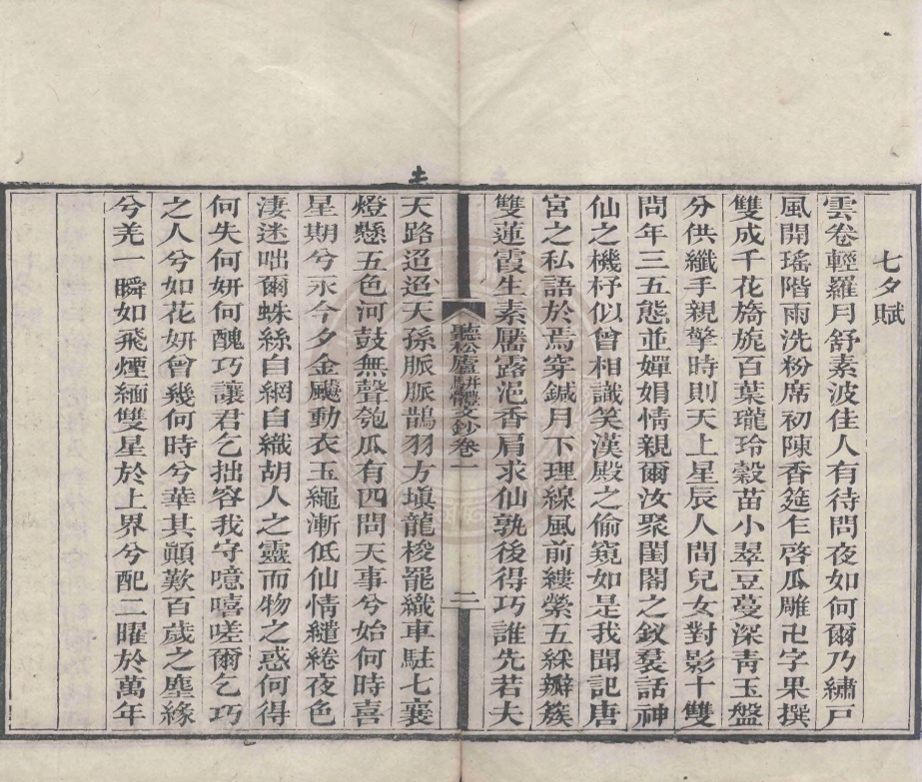 七夕賦
雲卷輕羅月舒素波佳人有待問夜如何爾乃繡戸
風開瑤階雨洗粉席初陳香筵乍啓瓜雕卍字果撰
雙成千花旖旎百葉瓏玲穀苗小翠豆蔓深青玉盤
分供纖手親擎時則天上星辰人間兒女對影十雙
問年三五態並嬋娟情親爾汝聚閨閣之釵羣話神
仙之機杼似曾相識笑漢殿之偷窺如是我聞記唐
宮之私語於焉穿鍼月下理線風前縷縈五綵瓣簇
雙蓮霞生素靨露浥香肩求仙孰後得巧誰先若夫
聽松廬駢體文鈔卷一
二
天路迢迢天孫脈脈鵲羽方塡龍梭罷織車駐七襄
燈懸五色河鼓無聲匏瓜有四問天事兮始何時喜
星期兮永今夕金飈動衣玉繩漸低仙情繾綣夜色
淒迷咄爾蛛絲自網自織胡人之靈而物之惑何得
何失何妍何醜巧讓君乞拙容我守噫嘻嗟爾乞巧
之人兮如花妍曾幾何時兮華其顛歎百歲之塵緣
兮羌一瞬如飛煙緬雙星於上界兮配二曜於萬年